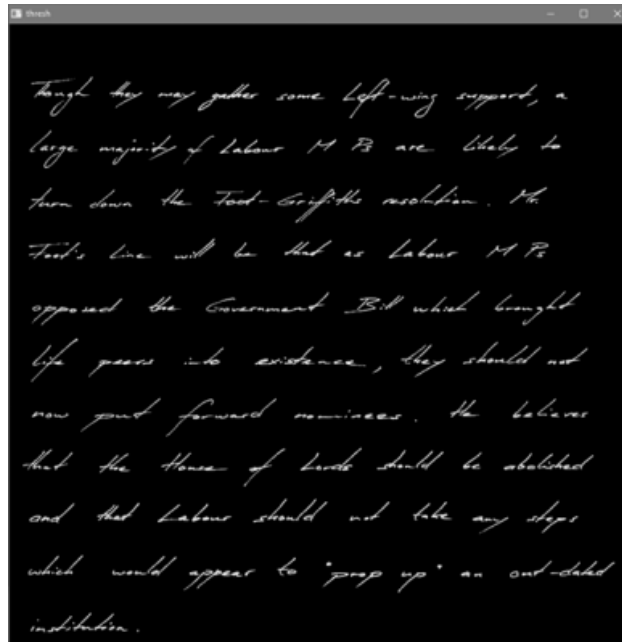 thresh
Though they may gather some Left-wing support, a
large majority of Labour M Ps are likely to
turn down the Foot-Griffiths resolution. Mr.
Foot's line will be that as Labour M Ps
opposed the Government Bill which brought
life peers into existence, they should not
now put forward nominees. He believes
that the House of Lords should be abolished
and that Labour should not take any steps
which would appear to "prop up" an out-dated
institution.